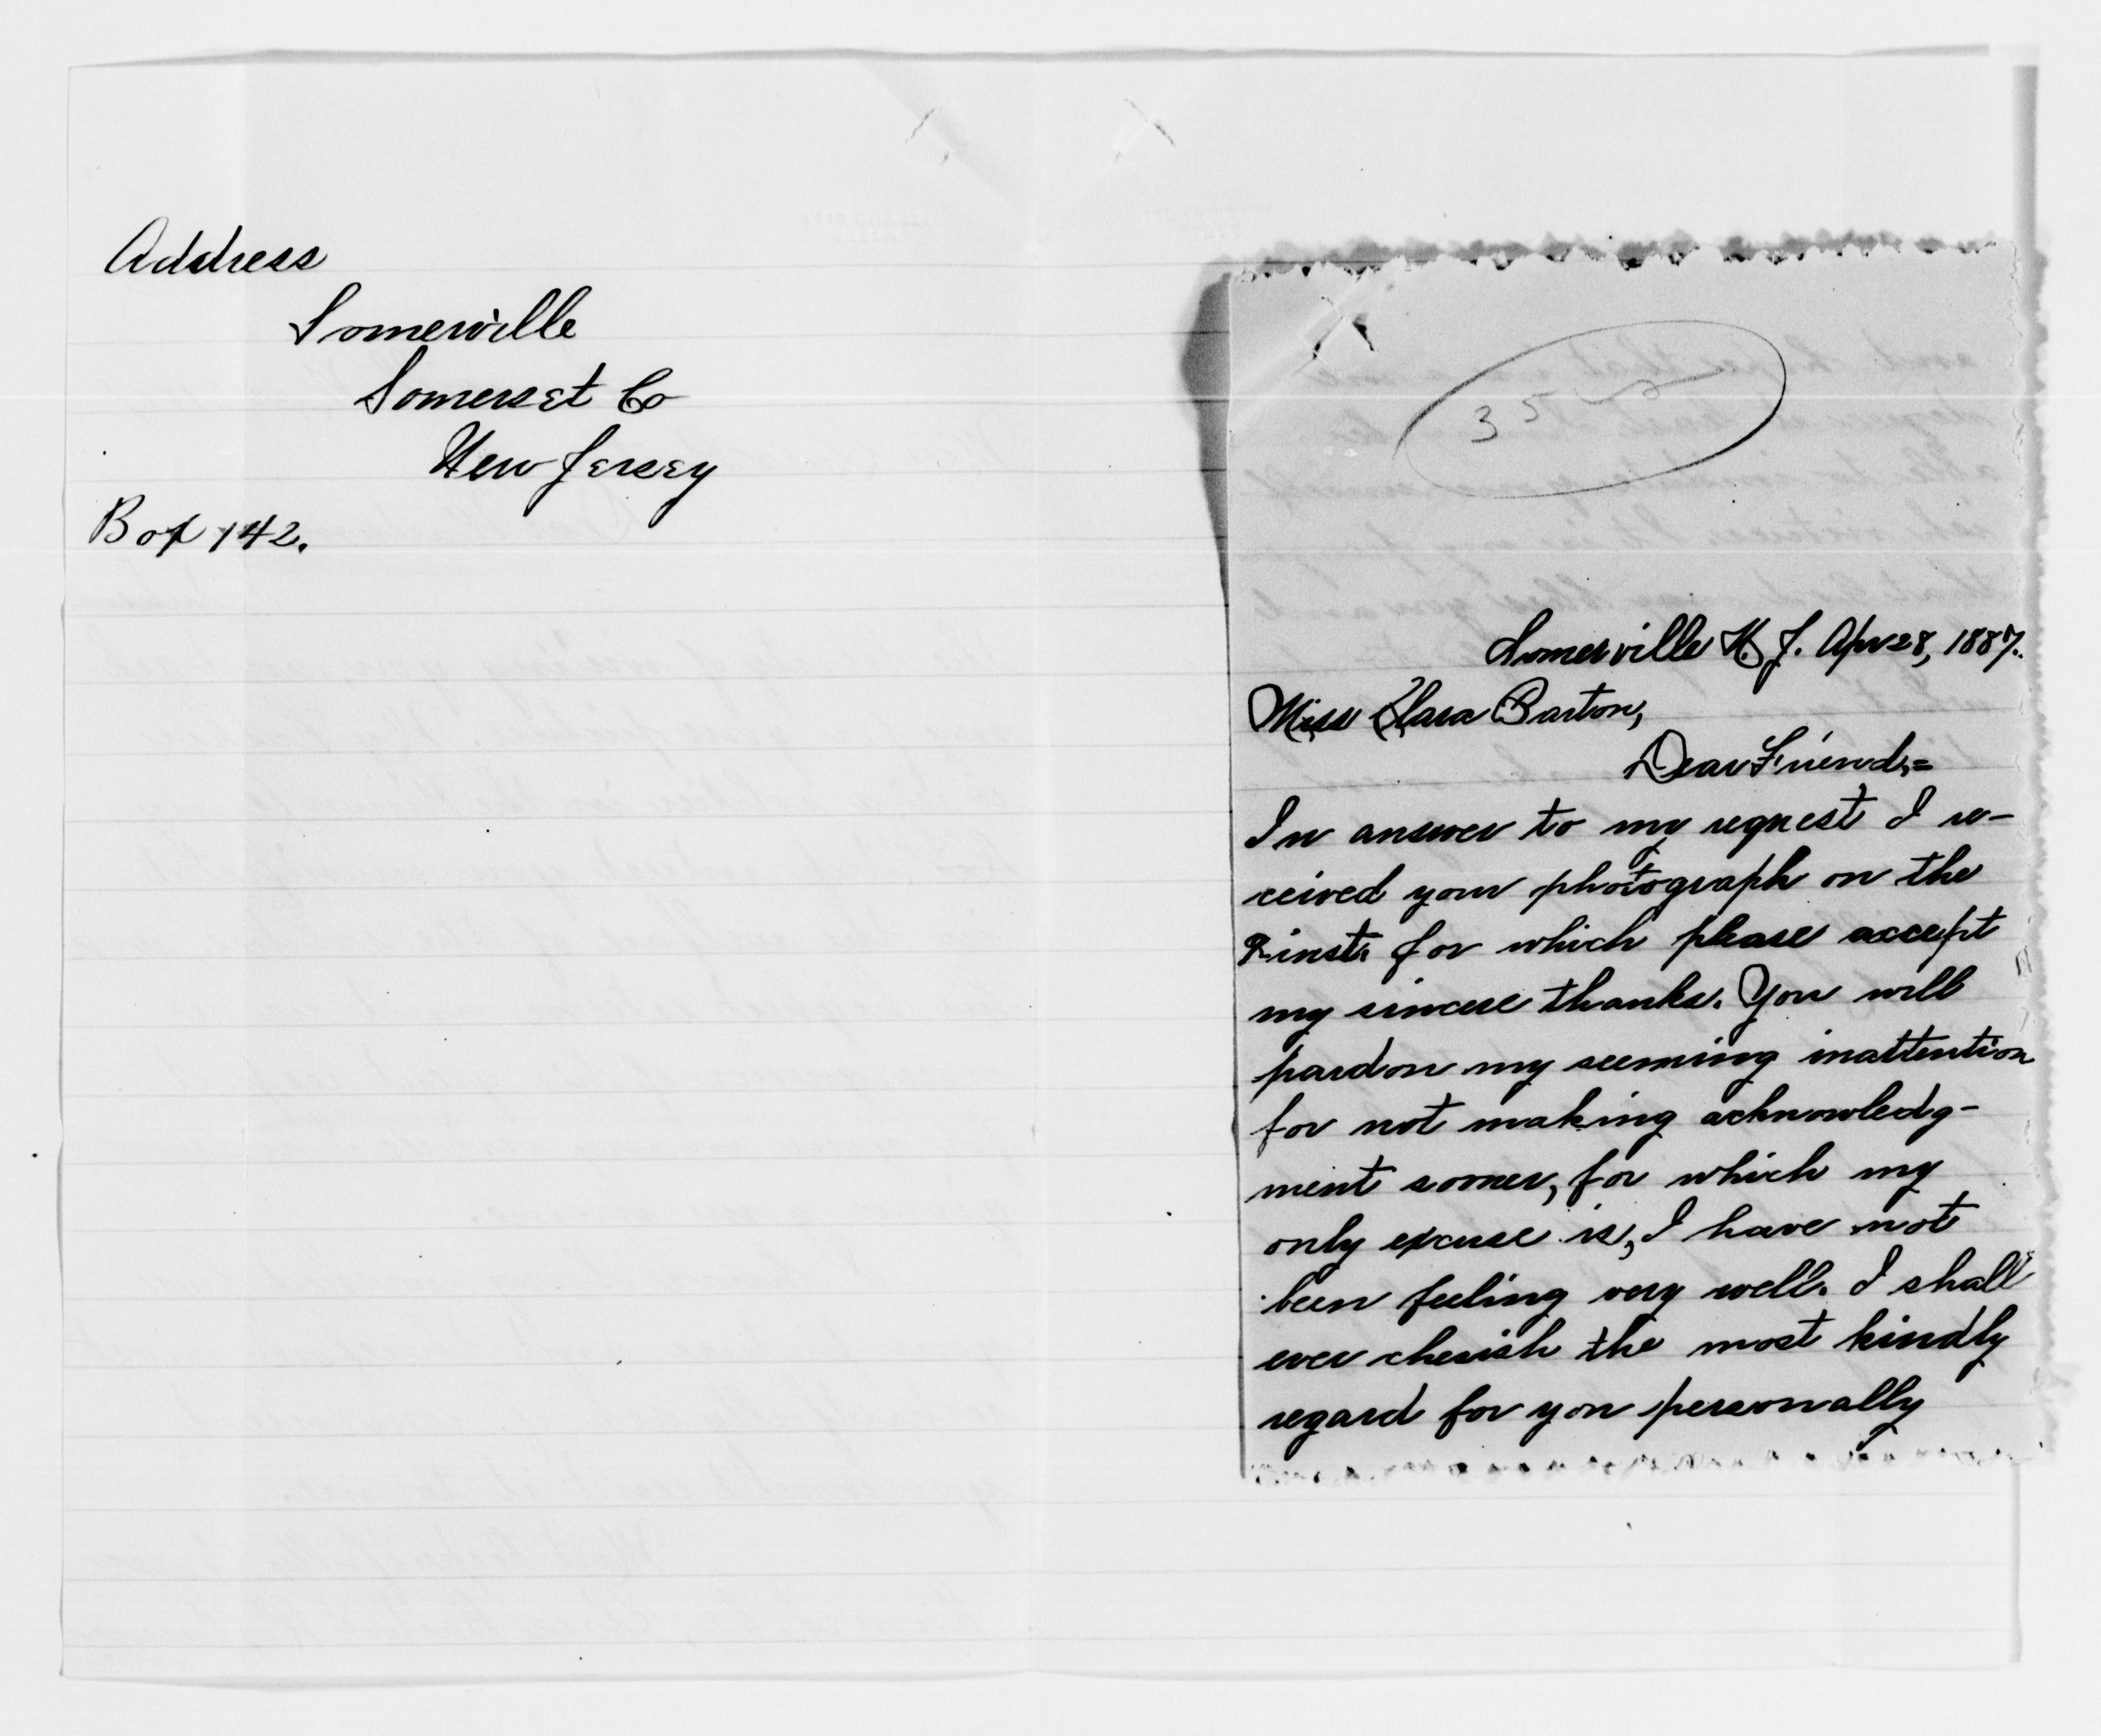 Address
Somerville
Somerset Co
New Jersey
Box 142.
35
Somerville N. J. Apr 28, 1887.
Miss Clara Barton,
Dear Friend,=
In answer to my request I re-
ceived your photograph on the
inst. for which please accept
my sincere thanks. You will
pardon my seeming inattention
for not making acknowledg-
ment sooner, for which my
only excuse is, I have not
been feeling very well. I shall
ever cherish the most kindly
regard for you personally